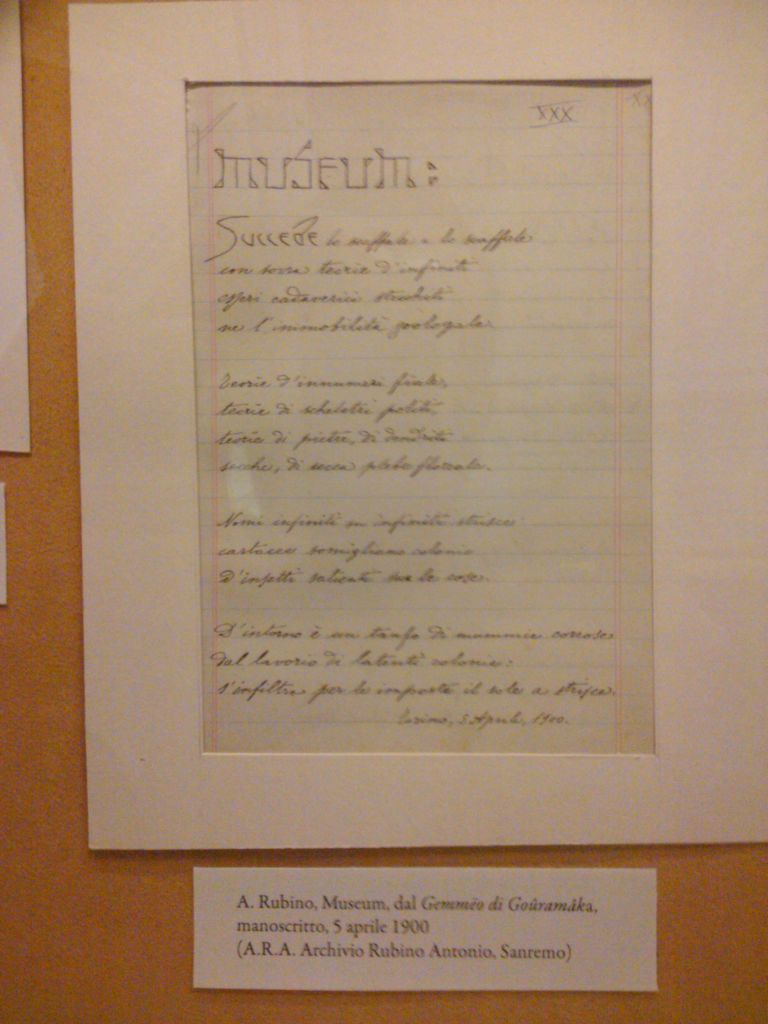 XXX
MUSEUM:
Succede lo scaffale a lo scaffale
con sovra teorie d'infiniti
cadaverici
ne l'immobilità zoologale.
Teorie d'innumeri fiale,
teorie di scheletri politi,
teorie di pietre, di dendriti
secche, di secca plebe floreale.
Nomi infiniti su infinite strisce
cartacee somigliano colonie
d'insetti su le cose.
D'intorno è un tanfo di mummie corrose
dal lavorio di latenti colonie:
s'infiltra per le imposte il sole a strisce.
Torino, 5 Aprile, 1900.
A. Rubino, Museum, dal Gemmëo di Goûramâka,
manoscritto, 5 aprile 1900
(A.R.A. Archivio Rubino Antonio, Sanremo)